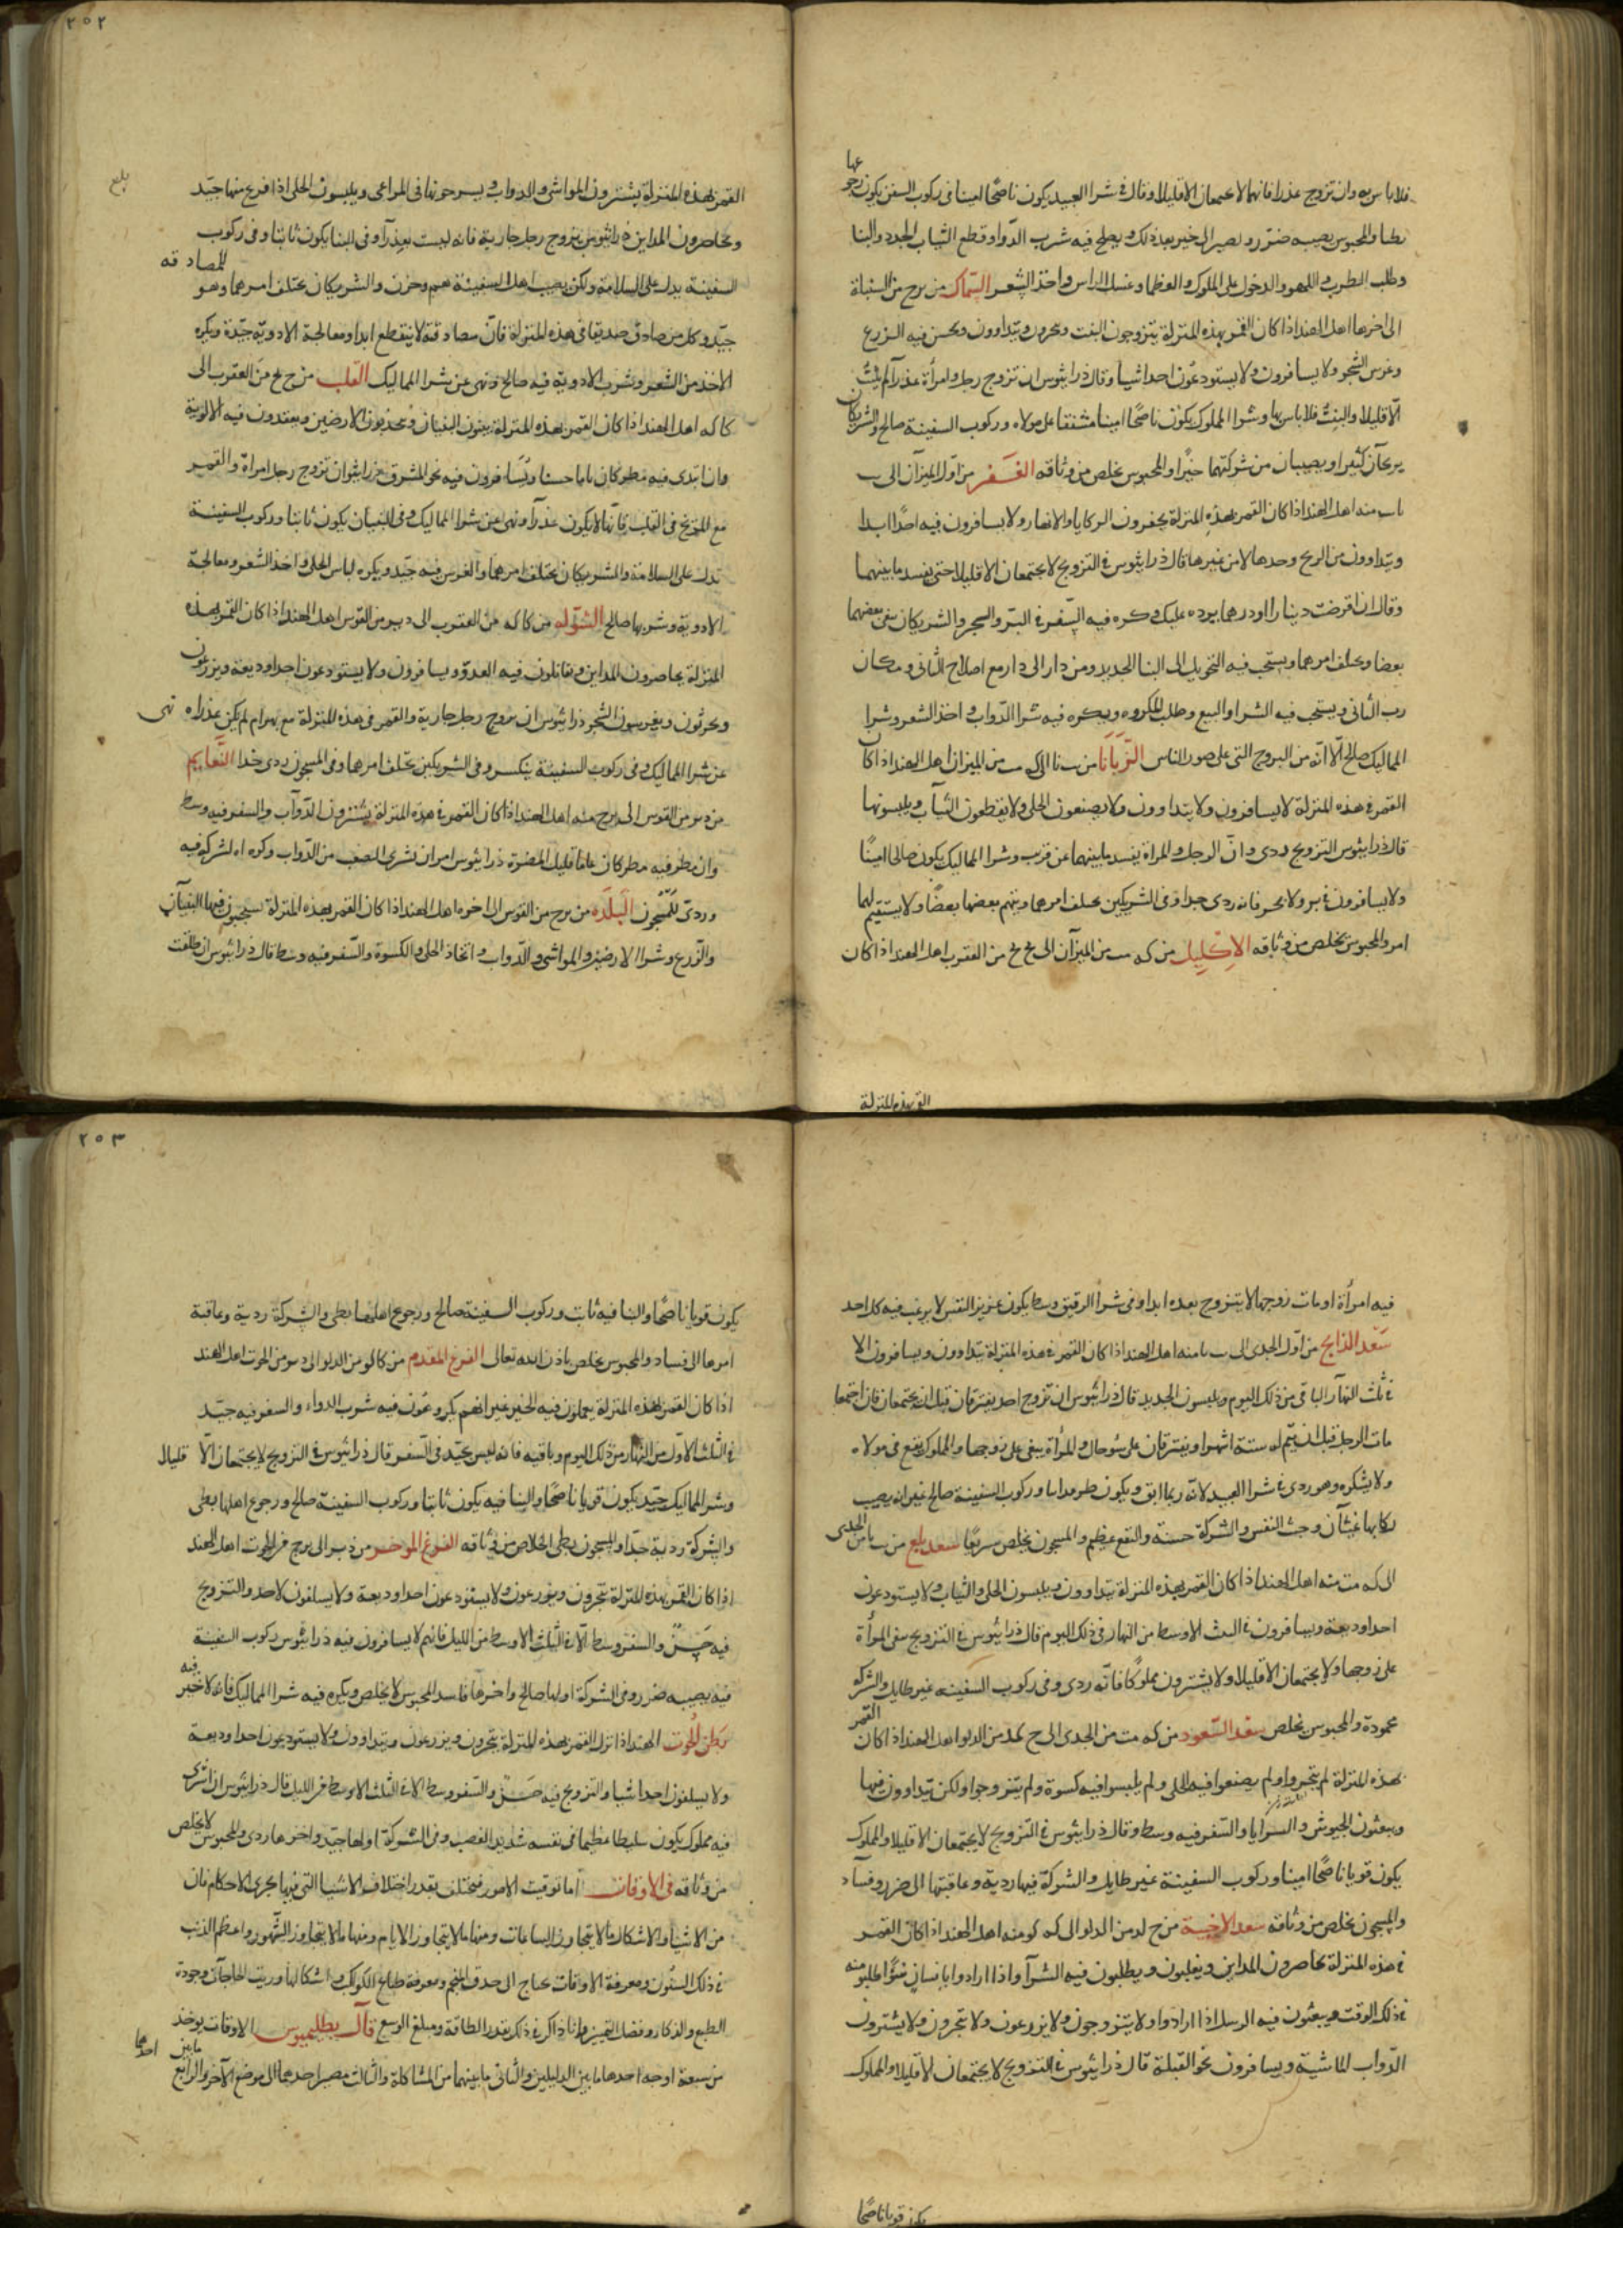 فلا باس به وان تزوج عذرا فانهما لا يجتمعان الا قليلا وقال في شرا العبيد يكون ناصحًا امينا في ركوب السفن يكون رجوعها
بطيا والمحبوس يصيبه ضرر ويصير الى خير بعد ذلك ويصلح فيه شرب الدوا وقطع الثياب الجدد والبنا
وطلب الطرب واللهو والدخول على الملوك والعظما وغسل الراس واخذ الشعر السّماك من برح من السنبلة
الى اخرها اهل الهند اذا كان القمر بهذه المنزلة يتزوجون البنت ويتداوون ويحسن فيه الزرع
وغرس الشجر ولا يسافرون ولا يستودعون احدا شيا وقال ذراثيوس ان تزوج رجل وامرأة عذرآ لم يلبث
الّا قليلا والبنتُ فلا باس بها وشرا المملوك يكون ناصحًا امينا مشفقا على مولاه وركوب السفينة صالح والشريكان
يربحان كثيرا ويصيبان من شركتهما خيرًا والمحبوس يخلص من وثاقه الغَفر من اول الميزان الى ب
يا ب منه اهل الهند اذا كان القمر بهذه المنزلة يحفرون الركايا والانهار ولا يسافرون فيه احدًا ابدا
ويتداوون من الريح وحدها لا من غيرها قال ذراثيوس في التزويج لا يجتمعان الا قليلا حتى يفسد ما بينهما
وقال ان اقرضت دينارا او درهما يرده عليك وكره فيه السّفر في البرّ والبحر والشريكان يبغي بعضهما
بعضا ويختلف امرهما ويستحب فيه التحويل الى البنا الجديد ومن دار الى دار مع اصلاح الثاني ومكان
رب الثاني ويستحب فيه الشرا والبيع وطلب المكروه ويكره فيه شرا الدّواب واخذ الشعر وشرا
المماليك صالح الّا انّه من البروج التي على صور الناس الزّبَانَا من ب نا الى كه م من الميزان اهل الهند اذا كان
القمر في هذه المنزلة لا يسافرون ولا يتداوون ولا يصنعون الحلي ولا يقطعون الثياب ويلبسونها
قال ذراثيوس التزويج ردى وانّ الرجل والمراة يفسد ما بينهما عن قرب وشرا المماليك يكون صالحا امينًا
ولا يسافرون في بر ولا بحر فانه ردى جدا وفى الشريكين يختلف امرهما ويتهم بعضها بعضًا ولا يستقيم لهما
امر والمحبوس يخلص من وثاقه الاِكْلِيل من كه م من الميزان الى ح لح من العقرب اهل الهند اذا كان
القمر بهذه المنزلة
٢٥٢
القمر بهذه المنزلة يشترون المواشي والدواب ويسرحونها في المراعي ويلبسون الحلى اذا فرغ منها جيّد
بلغ
ويحاصرون المداين ذراثيوس يتزوج رجل جارية فانه ليست بعذرآ وفى البنا يكون ثابتا وفى ركوب
السفينة يدل على السلامة ولكن يصيب اهل السفينة هم وحزن والشريكان يختلف امرهما وهو للمصادقه
جيّد وكل من صادق صديقا في هذه المنزلة فانّ مصادقته لا ينقطع ابدا ومعالجة الادوية جيّدة ويكره
الاخذ من الشعر وشرب الادوية فيه صالح ونهى عن شرا المماليك القلب من ح لح من العقرب الى
كا كه اهل الهند اذا كان القمر بهذه المنزلة يبنون البنيان ويعقدون فيه الالوية
وان ابتدى فيه مطر كان عاما حسنا ويُسَافرون فيه نحو المشرق ذراثيوس ان تزوج رجل امراة والقمر
مع المريخ في القلب فانّها لا يكون عذرآ ونهى عن شرا المماليك وفى البنيان يكون ثابتا وركوب السفينة
تدل على السلامة والشريكان يختلف امرهما والغرس فيه جيّد ويكره لباس الحلى واخذ الشعر ومعالجة
الادوية وشربها صالح الشّوله من كا كه من العقرب الى د من القوس اهل الهند اذا كان القمر بهذه
المنزلة يحاصرون المداين ويقاتلون فيه العدوّ ويسافرون ولا يستودعون احدا وديعة ويزرعون
ويحرثون ويغرسون الشجر ذراثيوس ان تزوج رجل جارية والقمر في هذه المنزلة مع بهرام لم يكن عذراء نهى
عن شرا المماليك وفى ركوب السفينة ينكسر وفى الشريكين يختلف امرهما وفى المسجون ردى جدا النّعَايم
من من القوس الى برح منه اهل الهند اذا كان القمر في هذه المنزلة يشترون الدّوآب والسفر فيه وسط
وان مطر فيه مطر كان عاما قليل المضرة ذراثيوس امر ان تشرى الصعب من الدّواب وكره الشركة فيه
وردى للمسجون البَلدَه من برح من القوس الى اخره اهل الهند اذا كان القمر بهذه المنزلة يستحبون فيها البنيآن
والزرع وشرا الارضين والمواشي والدّواب واتخاذ الحلى والكسوة والسّفر فيه وسط قال ذراثيوس ان طلّقت
فيه امرأة او مات زوجها لا يتزوج بعده ابدا وفى شرآ الرقيق وسط يكون عزيز النفس لا يرغب فيه كل احد
سَعْد الذابح من اوّل الجدى الى ب يا منه اهل الهند اذا كان القمر في هذه المنزلة يتداوون ويسافرون الا
في ثلث النهآر الباقى من ذلك اليوم ويلبسون الجديد قال ذراثيوس ان تزوج احد يفترقان قبل ان يجتمعان فان اجتمعا
مات الرجل قبل ان يتم له ستة اشهر او يفترقان على سُوحال والمرأة تبغى على زوجها والمملوك يقع في مولاه
ولا يشكره وهو ردى في شرا العبيد لانّه ربما ابق ويكون وركوب السفينة صالح غير انه يصيب
ركابها غثيآن وخبث النفس والشركة حسنة والنفع عظيم والمسجون يخلص سريعًا سعد بلع من ب يا من الجدى
الى كه مت منه اهل الهند اذا كان القمر بهذه المنزلة يتداوون ويلبسون الحلى والثياب ولا يستودعون
احدا وديعة ويسافرون في الثلث الاوسط من النهار في ذلك اليوم قال ذراثيوس في التزويج تبغى المرأة
على زوجها ولا يجتمعان الا قليلا ولا يشترون مملوكًا فانّه ردى وفى ركوب السفينه غير طايل والشركه
محمودة والمحبوس يخلص سعْد السّعود من كه مت من الجدى الى ح من الدلو اهل الهند اذا كان القمر
بهذه المنزلة لم يتجروا ولم يصنعوا فيه الحلى ولم يلبسوا فيه كسوة ولم يتزوجوا ولكن يتداوون فيها
ويبعثون الجيوش والسرايا والسّفر فيه وسط وقال ذراثيوس في التزويج لا يجتمعان الا قليلا والمملوك
يكون قويا ناصحًا امينا وركوب السفينة غير طايل والشركة فيها ردية وعاقبتها الى ضرر وفسآد
والمسجون يخلص من وثاقه سعد الاخبية من ح لو من الدلو الى كه كو منه اهل الهند اذا كان القمر
في هذه المنزلة يحاصرون المداين ويغلبون ويطلبون فيه الشرآ واذا ارادوا بانسان سُوًا طلبوا منه
في ذلك الوقت ويبعثون فيه الرسل اذا ارادوا ولا يتزوجون ولا يزرعون ولا يتجرون ولا يشترون
الدّواب الماشية ويسافرون نحو القبلة قال ذراثيوس في التزويج لا يجتمعان الا قليلا والمملوك
يكون قويا ناصحًا
٢٥٣
يكون قويا ناصحًا والبنا فيه ثابت وركوب السفينة صالح ورجوع اهلها بطى والشركة ردية وعاقبة
امرها الى فساد والمحبوس يخلص باذن الله تعالى الفرغ المقدم من كا لو من الدلو الى د من الحوت اهل الهند
اذا كان القمر بهذه المنزلة يعملون فيه الخير غير انهم يكرهون فيه شرب الدواء والسفر فيه جيّد
في الثلث الاوّل من النهار من ذلك اليوم وباقيه فانه ليس بجيّد في السّفر قال ذراثيوس في التزويج لا يجتمعان الّا قليلا
وشرا المماليك جيّد يكون قويا ناصحًا والبنا فيه يكون ثابتا وركوب السفينة صالح ورجوع اهلها بطى
والشركة ردية جدّا والمسجون بطى الخلاص من وثاقه الفرغ الموخر من د الى برح من الحوت اهل الهند
اذا كان القمر بهذه المنزلة يتجرون ويزرعون ولا يستودعون احدا وديعة ولا يسلفون لاحد والتزويج
فيه حَسَنٌ والسفر وسط الّا في الثّلث الاوسط من الليل فانهم لا يسافرون فيه ذراثيوس ركوب السفينة
فيه يصيبه ضرر وفى الشركة اولها صالح واخرها فاسد المحبوس لا يخلص ويكره فيه شرا المماليك فانه لا خير فيه
بَطن الحُوت الهند اذا نزل القمر بهذه المنزلة يتجرون ويزرعون ويتداوون ولا يستودعون احدا وديعة
ولا يسلفون احدا شيا والتزويج فيه حَسَنٌ والسّفر وسط الا في الثلث الاوسط من الليل قال ذراثيوس ان اشترى
فيه مملوك يكون سليطا عظيما في نفسه شديد الغضب وفى الشركة اولها جيّد واخرها ردى والمحبوس لا يخلص
من وثاقه في الاوقات اما توقيت الامور فتختلف بقدر اختلاف الاشيا التى فيها يجرى الاحكام فان
من الاشيآ والاشكال ما لا يتجاوز الساعات ومنها ما لا يتجاوز الايام ومنها ما لا يتجاوز الشّهور واعظم الذنب
في ذلك السنُون ومعرفة الاوقات تحتاج الى حدق المنجم ومعرفة طبايع الكواكب واشكالها وريب الحاجآن وجودة
الطبع والذكا وفضل التمييز وانا ذاكر في ذلك بقدر الطاقة ومبلغ الوسع قال بطليموس الاوقات يوخذ
من سبعة اوجه احدها ما بين الدليلين والثانى ما بينهما من المشاكلة والثالث مصير احدهما الى موضع الآخر والرابع ما بين احدهما